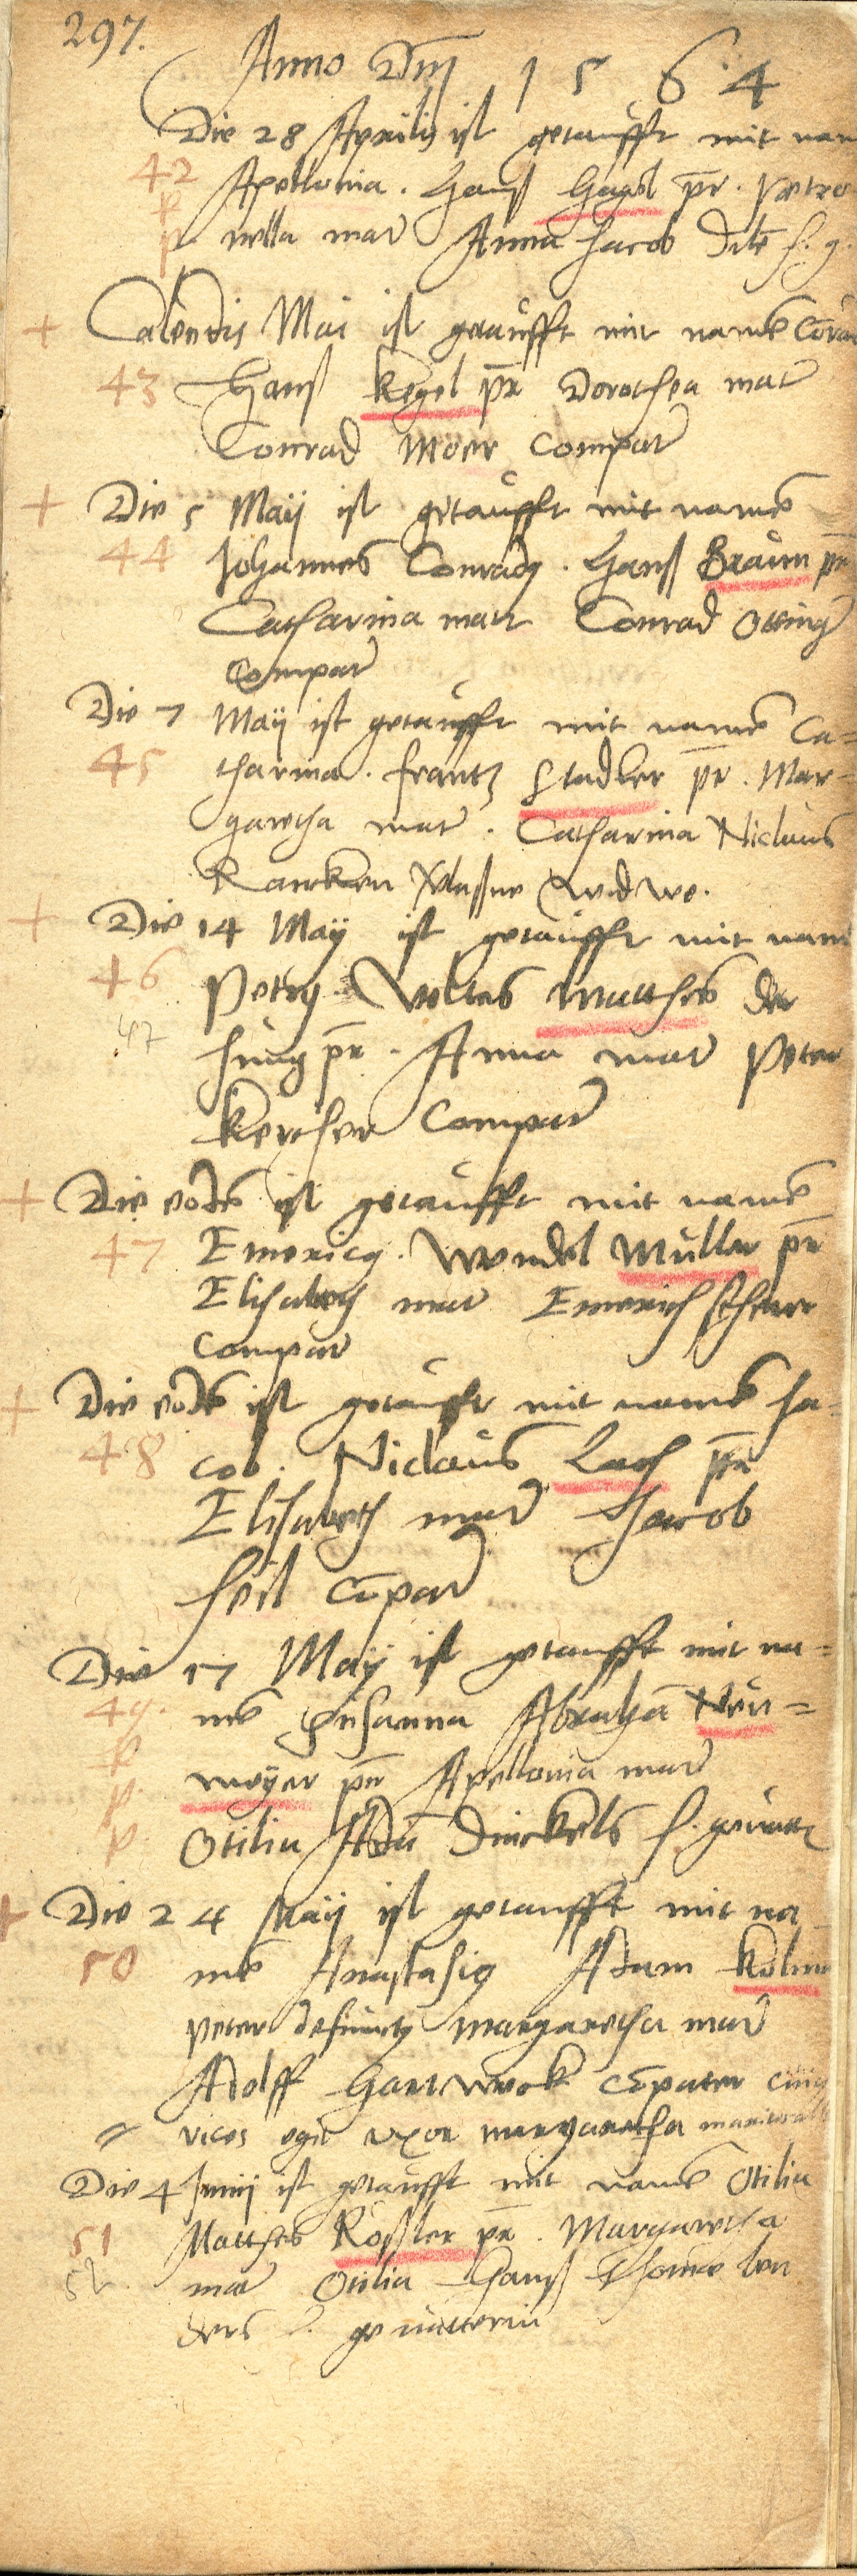 297.
Anno Dm̄ 1 5 6 4
Die 28 Aprilis ist getaufft mit nam
42 Apellonia. Hans Gagel pr̄. Petro
p nella mat̄ Anna Jacob
+ Calendis Maii ist getaufft mit namē Conr
43 Hans Kegel pr̄ Dorothea mat̄
Conrad Moer Compat̄
+ Die 5 Maij ist getaufft mit namē
44 Johannes Conrady. Hans Braun pr̄
Catharina matr Conrad Ottinḡ
Compat̄
Die 7 Maij ist getaufft mit namē Ca=
45 tharina. Frantz Stadler pr̄. Mar-
garetha mat̄. Catharina Niclaus
Rancken Widwe.
+ Die 14 Maij ist getaufft mit nam
46 Petrg Veltes Mathes der
47 Jung pr̄. Anna mat̄ Peter
Kercher Compat̄
+ Die eodē ist getaufft mit namē
47 Emericg. Wendel Muller pr̄
Elisabeth mat̄ Emerich Scherer
Compat̄
+ Die eodē ist getaufft mit namē Ja=
48 cob. Niclaus Lach pr̄
Elisabeth mat̄ Jacob
Seil cūpat̄
Die 17 Maij ist getaufft mit na=
49. mē Susanna Abrahā Neu=
p meyer pr̄ Apellonia mat̄
p Otilia Adā Dinckels f. geuatt
+ Die 24 Maij ist getaufft mit na
50 mē Anastasig Adam Kolm
peter defunctg Margaretha mat̄
Adolff Hartweck cūpater cuig
vices egit uxor margaretha
Die 4 Junij ist getaufft mit namē Otilia
51 Matthes Rösler pr̄. Margaretha
52. mat̄ Otilia Hans Thome len
ders f. geuatterin